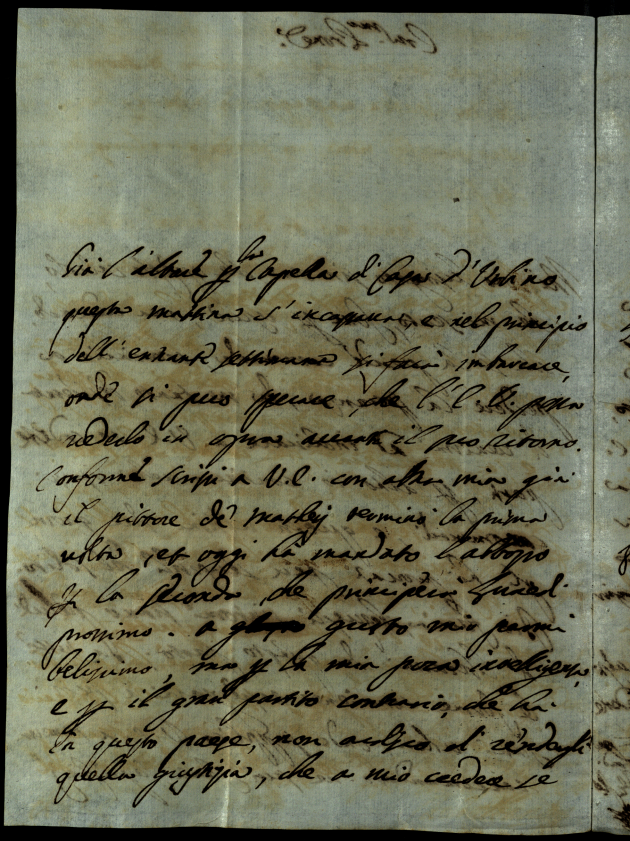 Già l'altare p la Capella di Capo d'Urbino
questa mattina s'incassava e nel principio
dell'entrante settimana si farà imbarcare,
onde si può sperare, che l'E. V. possa
vederlo in opera avanti il suo ritorno.
Conforme scrissi a V. E. con altra mia già
il pittore de Matteij terminò la prima
volta, et oggi ha mandato l'abbozzo
p la seconda che principierà Lunedì
prossimo. a questo mio parmi
belissimo, ma p la mia poca intelligenza,
e p il gran partito contrario, che ha
in questo paese, non ardisco di rendergli
quella giustizia, che a mio credere se